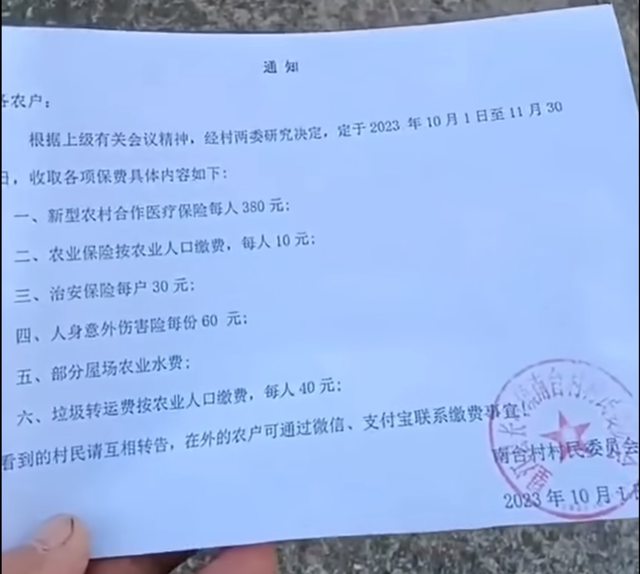 通 知
各农户：
根据上级有关会议精神，经村两委研究决定，定于2023 年10月1日至11月30
日，收取各项保费具体内容如下：
一、新型农村合作医疗保险每人380元；
二、农业保险按农业人口缴费，每人10元；
三、治安保险每户30元；
四、人身意外伤害险每份60 元；
五、部分屋场农业水费；
六、垃圾转运费按农业人口缴费，每人40元；
看到的村民请互相转告，在外的农户可通过微信、支付宝联系缴费事宜！
南台村村民委员会
2023年10月1日